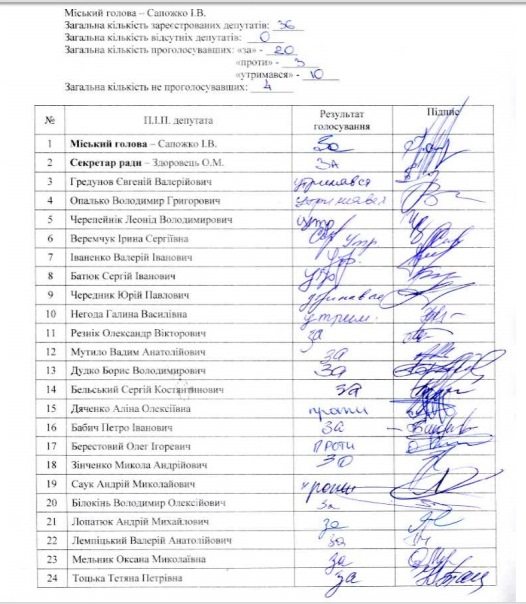 Міський голова – Сапожко І.В.
Загальна кількість зареєстрованих депутатів: 36
Загальна кількість відсутніх депутатів: 0
Загальна кількість проголосувавших: «за» - 20
«проти» - 3
«утримався» - 10
Загальна кількість не проголосувавших: 4
№ П.І.П. депутата Результат голосування Підпис
1 Міський голова – Сапожко І.В. За
2 Секретар ради – Здоровець О.М. ЗА
3 Гредунов Євгеній Валерійович утримався
4 Опалько Володимир Григорович утримався
5 Черепейнік Леонід Володимирович утр
6 Веремчук Ірина Сергіївна Утр
7 Іваненко Валерій Іванович Утр.
8 Батюк Сергій Іванович утр
9 Чередник Юрій Павлович
10 Негода Галина Василівна утрим.
11 Резнік Олександр Вікторович за
12 Мутило Вадим Анатолійович за
13 Дудко Борис Володимирович За
14 Бельський Сергій Костянтинович за
15 Дяченко Аліна Олексіївна проти
16 Бабич Петро Іванович ЗА
17 Берестовий Олег Ігоревич ПРОТИ
18 Зінченко Микола Андрійович ЗО
19 Саук Андрій Миколайович проти
20 Білокінь Володимир Олексійович За
21 Лопатюк Андрій Михайлович за
22 Лемпіцький Валерій Анатолійович за
23 Мельник Оксана Миколаївна за
24 Тоцька Тетяна Петрівна за